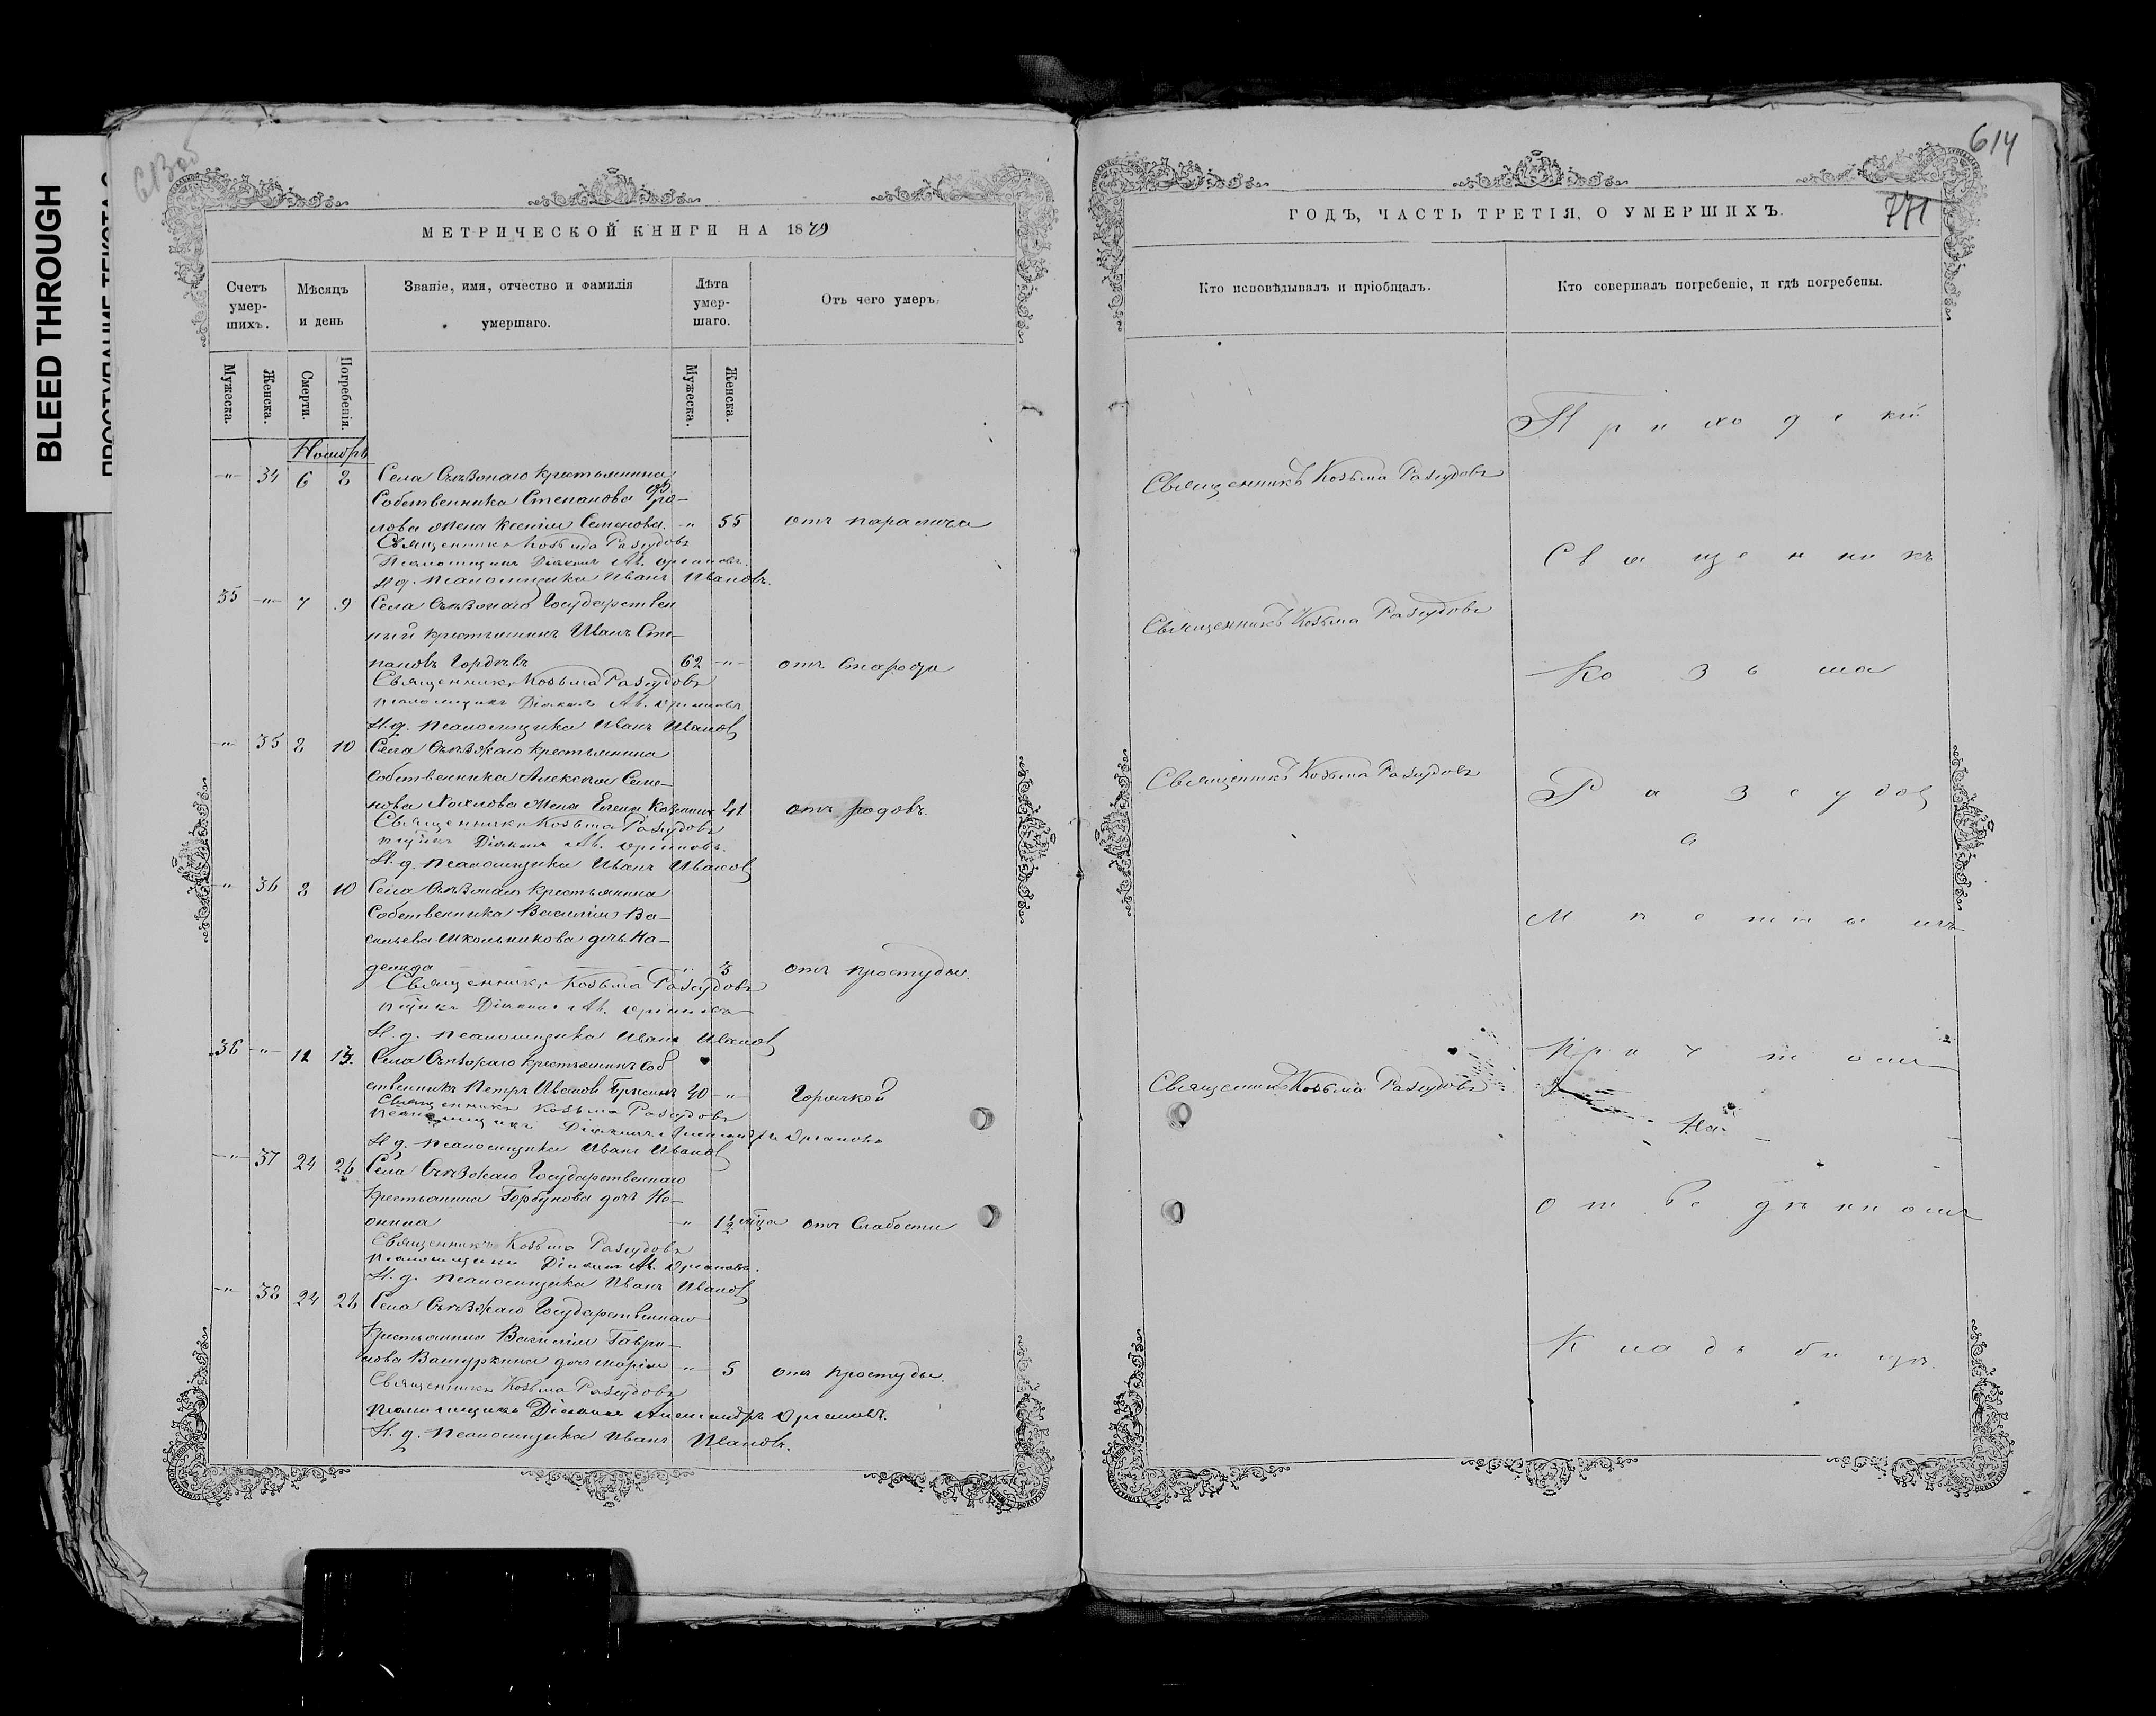 BLEED THROUGH
613об
МЕТРИЧЕСКОЙ КНИГИ НА 1879
Счетъ умер-шихъ.
Мѣсяцъ и день
Званіе, имя, отчество и фамилія умершаго.
Лѣта умер-шаго.
Отъ чего умеръ.
Мужеска.
Женска.
Смерти.
Погребенія.
Мужеска.
Женска.
Ноябрь
-"- 34 6 8 Села Съѣзжаго крестьянина
Собственника Степанова Фро-
лова жена Ксенія Семенова. -"- 55 отъ паралича
Священникъ Козьма Разсудовъ
Псаломщикъ Діаконъ Ал.
И. д. псаломщика Иванъ Ивановъ.
35 -"- 7 9 Села Съѣзжаго Государствен
ный крестьянинъ Иванъ Сте-
пановъ Гордѣевъ 62 -"- отъ Старости
Священникъ Козьма Разсудовъ
псаломщикъ Діаконъ Ал.
И. д. псаломщика Иванъ Ивановъ
-"- 35 8 10 Села Съѣзжаго крестьянина
Собственника Алексѣя Семе-
нова жена Елена 41 отъ родовъ.
Священникъ Козьма Разсудовъ
Діаконъ Ал.
И. д. псаломщика Иванъ Ивановъ
-"- 36 8 10 Села Съѣзжаго крестьянина
Собственника Василія Ва-
сильева Школьникова дочь На-
дежда -"- 3 отъ простуды
Священникъ Козьма Разсудовъ
Діаконъ Ал.
И. д. псаломщика Иванъ Ивановъ
36 -"- 11 13. Села Съѣзжаго крестьянинъ соб
ственникъ Петръ Ивановъ 40 -"- Горячкой
Священникъ Козьма Разсудовъ
псаломщикъ Діаконъ Александръ
И. д. псаломщика Иванъ Ивановъ
-"- 37 24 26 Села Съѣзжаго Государственнаго
крестьянина Горбунова дочь
-"- 1½ мѣца отъ Слабости
Священникъ Козьма Разсудовъ
псаломщикъ Діаконъ Ал.
И. д. псаломщика Иванъ Ивановъ
-"- 38 24 26 Села Съѣзжаго Государственнаго
крестьянина Василія Гаври-
лова дочь Марія -"- 5 отъ простуды.
Священникъ Козьма Разсудовъ
псаломщикъ Діаконъ Александръ
И. д. псаломщика Иванъ Ивановъ.
614
771
ГОДЪ, ЧАСТЬ ТРЕТІЯ, О УМЕРШИХЪ.
Кто исповѣдывалъ и пріобщалъ.
Кто совершалъ погребеніе, и гдѣ погребены.
Приходскій
Священникъ Козьма Разсудовъ
Священникъ
Священникъ Козьма Разсудовъ
Козьма
Священникъ Козьма Разсудовъ
Разсудовъ
с
Мѣстнымъ
Причтомъ
Священникъ Козьма Разсудовъ
На
отведенномъ
Кладбищѣ.